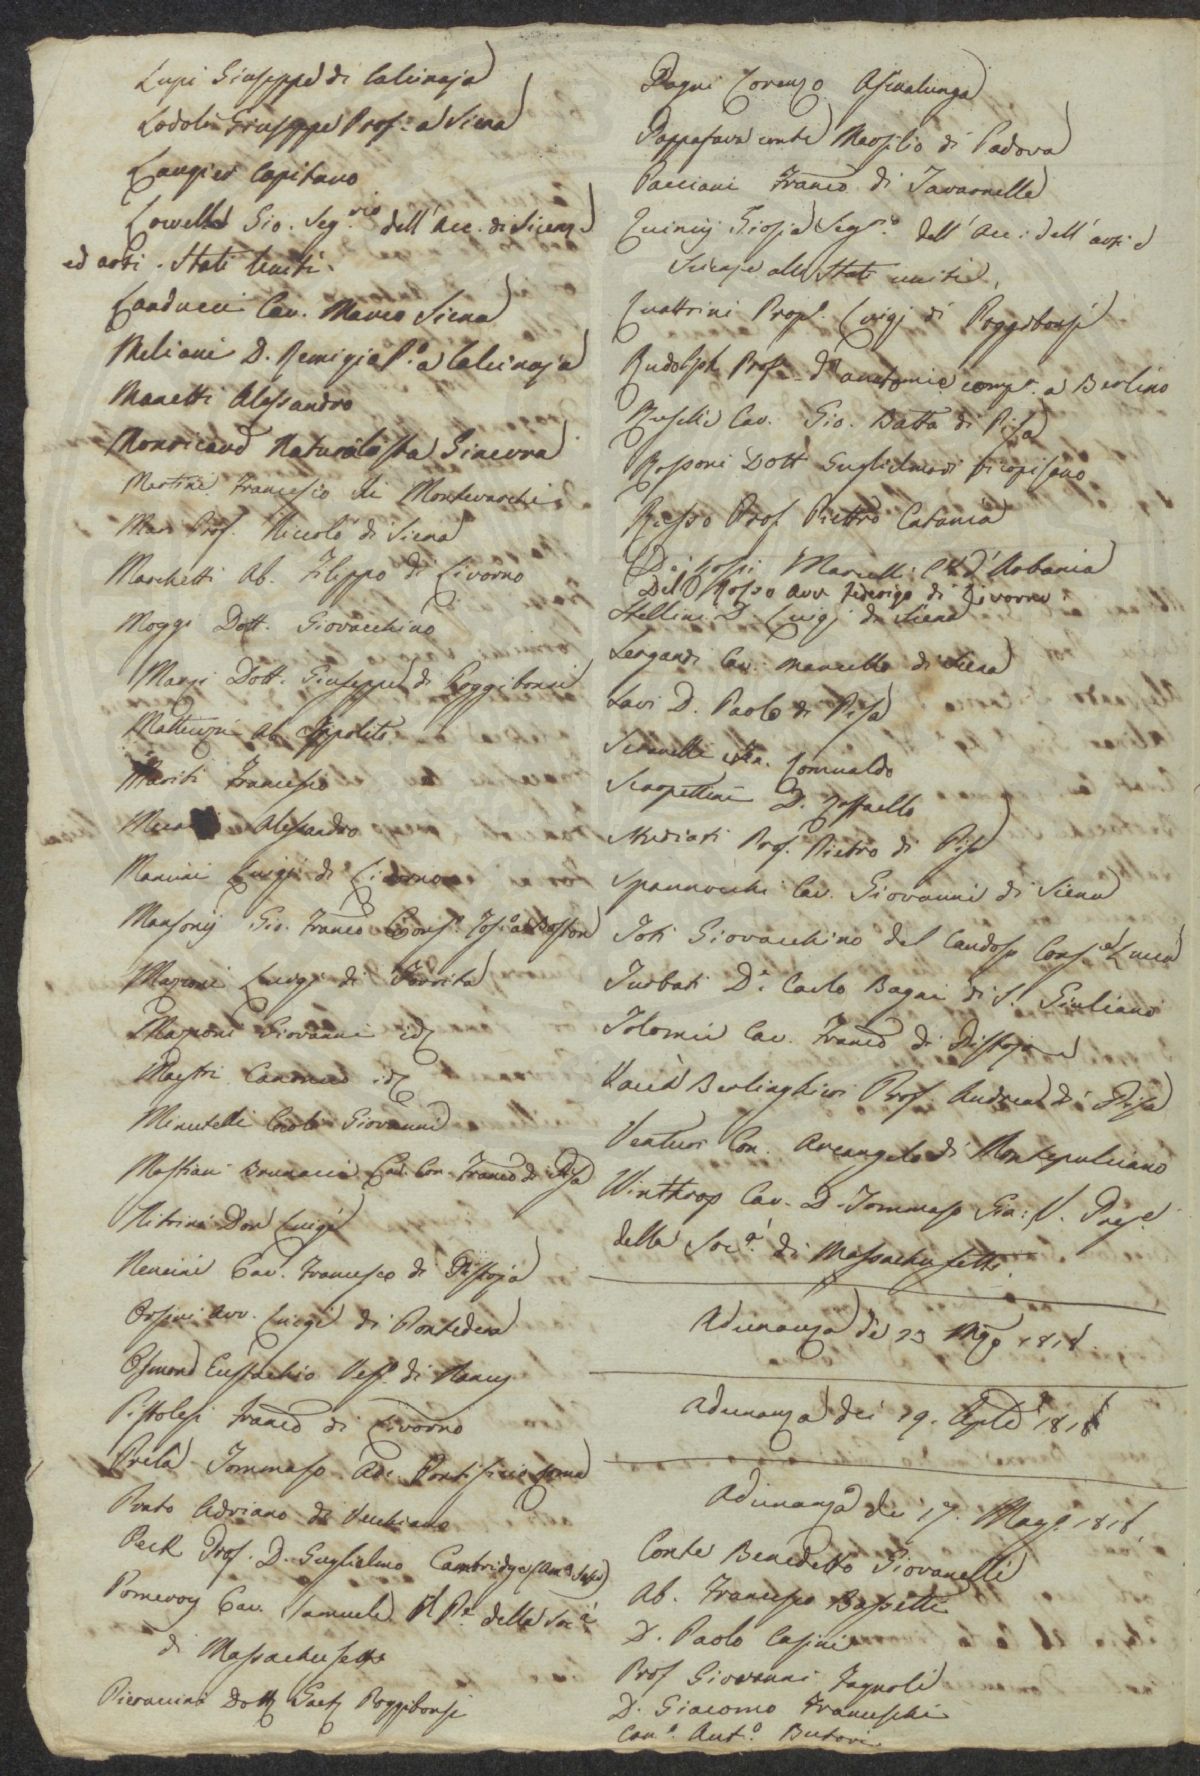 Lupi Giuseppe di Calcinaja
Lodoli Giuseppe Prof.e a Siena
Laugier Capitano
Lowell Gio. Seg.rio dell'Acc. di Scienze
ed arti. Stati Uniti.
Landucci Cav. Marco Siena
Meliani D. Remigia P.o a Calcinaja
Manetti Alessandro
Monricaud Naturalista Ginevra
Martini Francesco di Montevarchi
Mari Prof. Niccolò di Siena
Marchetti Ab. Filippo di Livorno
Moggi Dott. Giovacchino
Marzi Dott. Giuseppe di Poggibonsi
Matteuzzi Ab. Ippolito
Mariti Francesco
Alessandro
Mancini Luigi di Livorno
Mansony Gio. Franco Cons. Tos.o a Boston
Mazzoni Luigi di Torrita
Mazzoni Giovanni id
Maestri Canonico id
Minutelli Conte Giovanni
Mastiani Brunacci Cav. Con. Franco di Pisa
Nitrini Don Luigi
Nencini Cav. Francesco di Pistoja
Orsini Avv. Luigi di Pontedera
Osmond Eustachio Vesc. di Nancy
Pistolesi Franco di Livorno
Prelà Tommaso Arc. Pontificio Roma
Prato Adriano di Vecchiano
Peck Prof. D. Guglielmo Cambridge
Pomeroy Cav. Samuele Pl P.e della Soc.à
di Massachusetts
Pieraccini Dott Gaet Poggibonsi
Pagni Lorenzo Asinalunga
Pappafava conte Marsilio di Padova
Pacciani Franco di Tavarnelle
Quincy Giosia Seg.o dell'Acc. dell'arti e
Scienze alli Stati uniti,
Quattrini Prop. Luigi di Poggibonsi
Rudolph Prof.e d'anatomia comp.a a Berlino
Ruschi Cav. Gio. Batta di Pisa
Rossoni Dott Guglielmo di Vicopisano
Riesso Prof. Pietro Catania
De' Rossi Marcell. C. d'Urbania
Del Rosso Avv Federigo di Livorno
Stellini D. Luigi di Siena
Sergardi Cav. Marcello di Siena
Savi D. Paolo di Pisa
Romualdo
Scarpellini D. Raffaello
Studiati Prof. Pietro di Pisa
Spannocchi Cav. Giovanni di Siena
Toti Giovacchino del Lucca
Turbati D.r Carlo Bagni di S. Giuliano
Tolomei Cav. Franco di Pistoja
Vaccà Berlinghieri Prof. Andrea di Pisa
Venturi Con. Arcangelo di Montepulciano
Winthrop Cav. D. Tommaso V. Pres.e
della Soc.à di Massachusetts.
Adunanza de 23 1818.
Adunanza dei 19. Aprle 1818
Adunanza de 17. Mag. 1818.
Conte Benedetto Giovanelli
Ab. Francesco Bassetti
D. Paolo Casini
Prof Giovanni Fagnoli
D. Giacomo Franceschi
Can.o Ant.o Butori